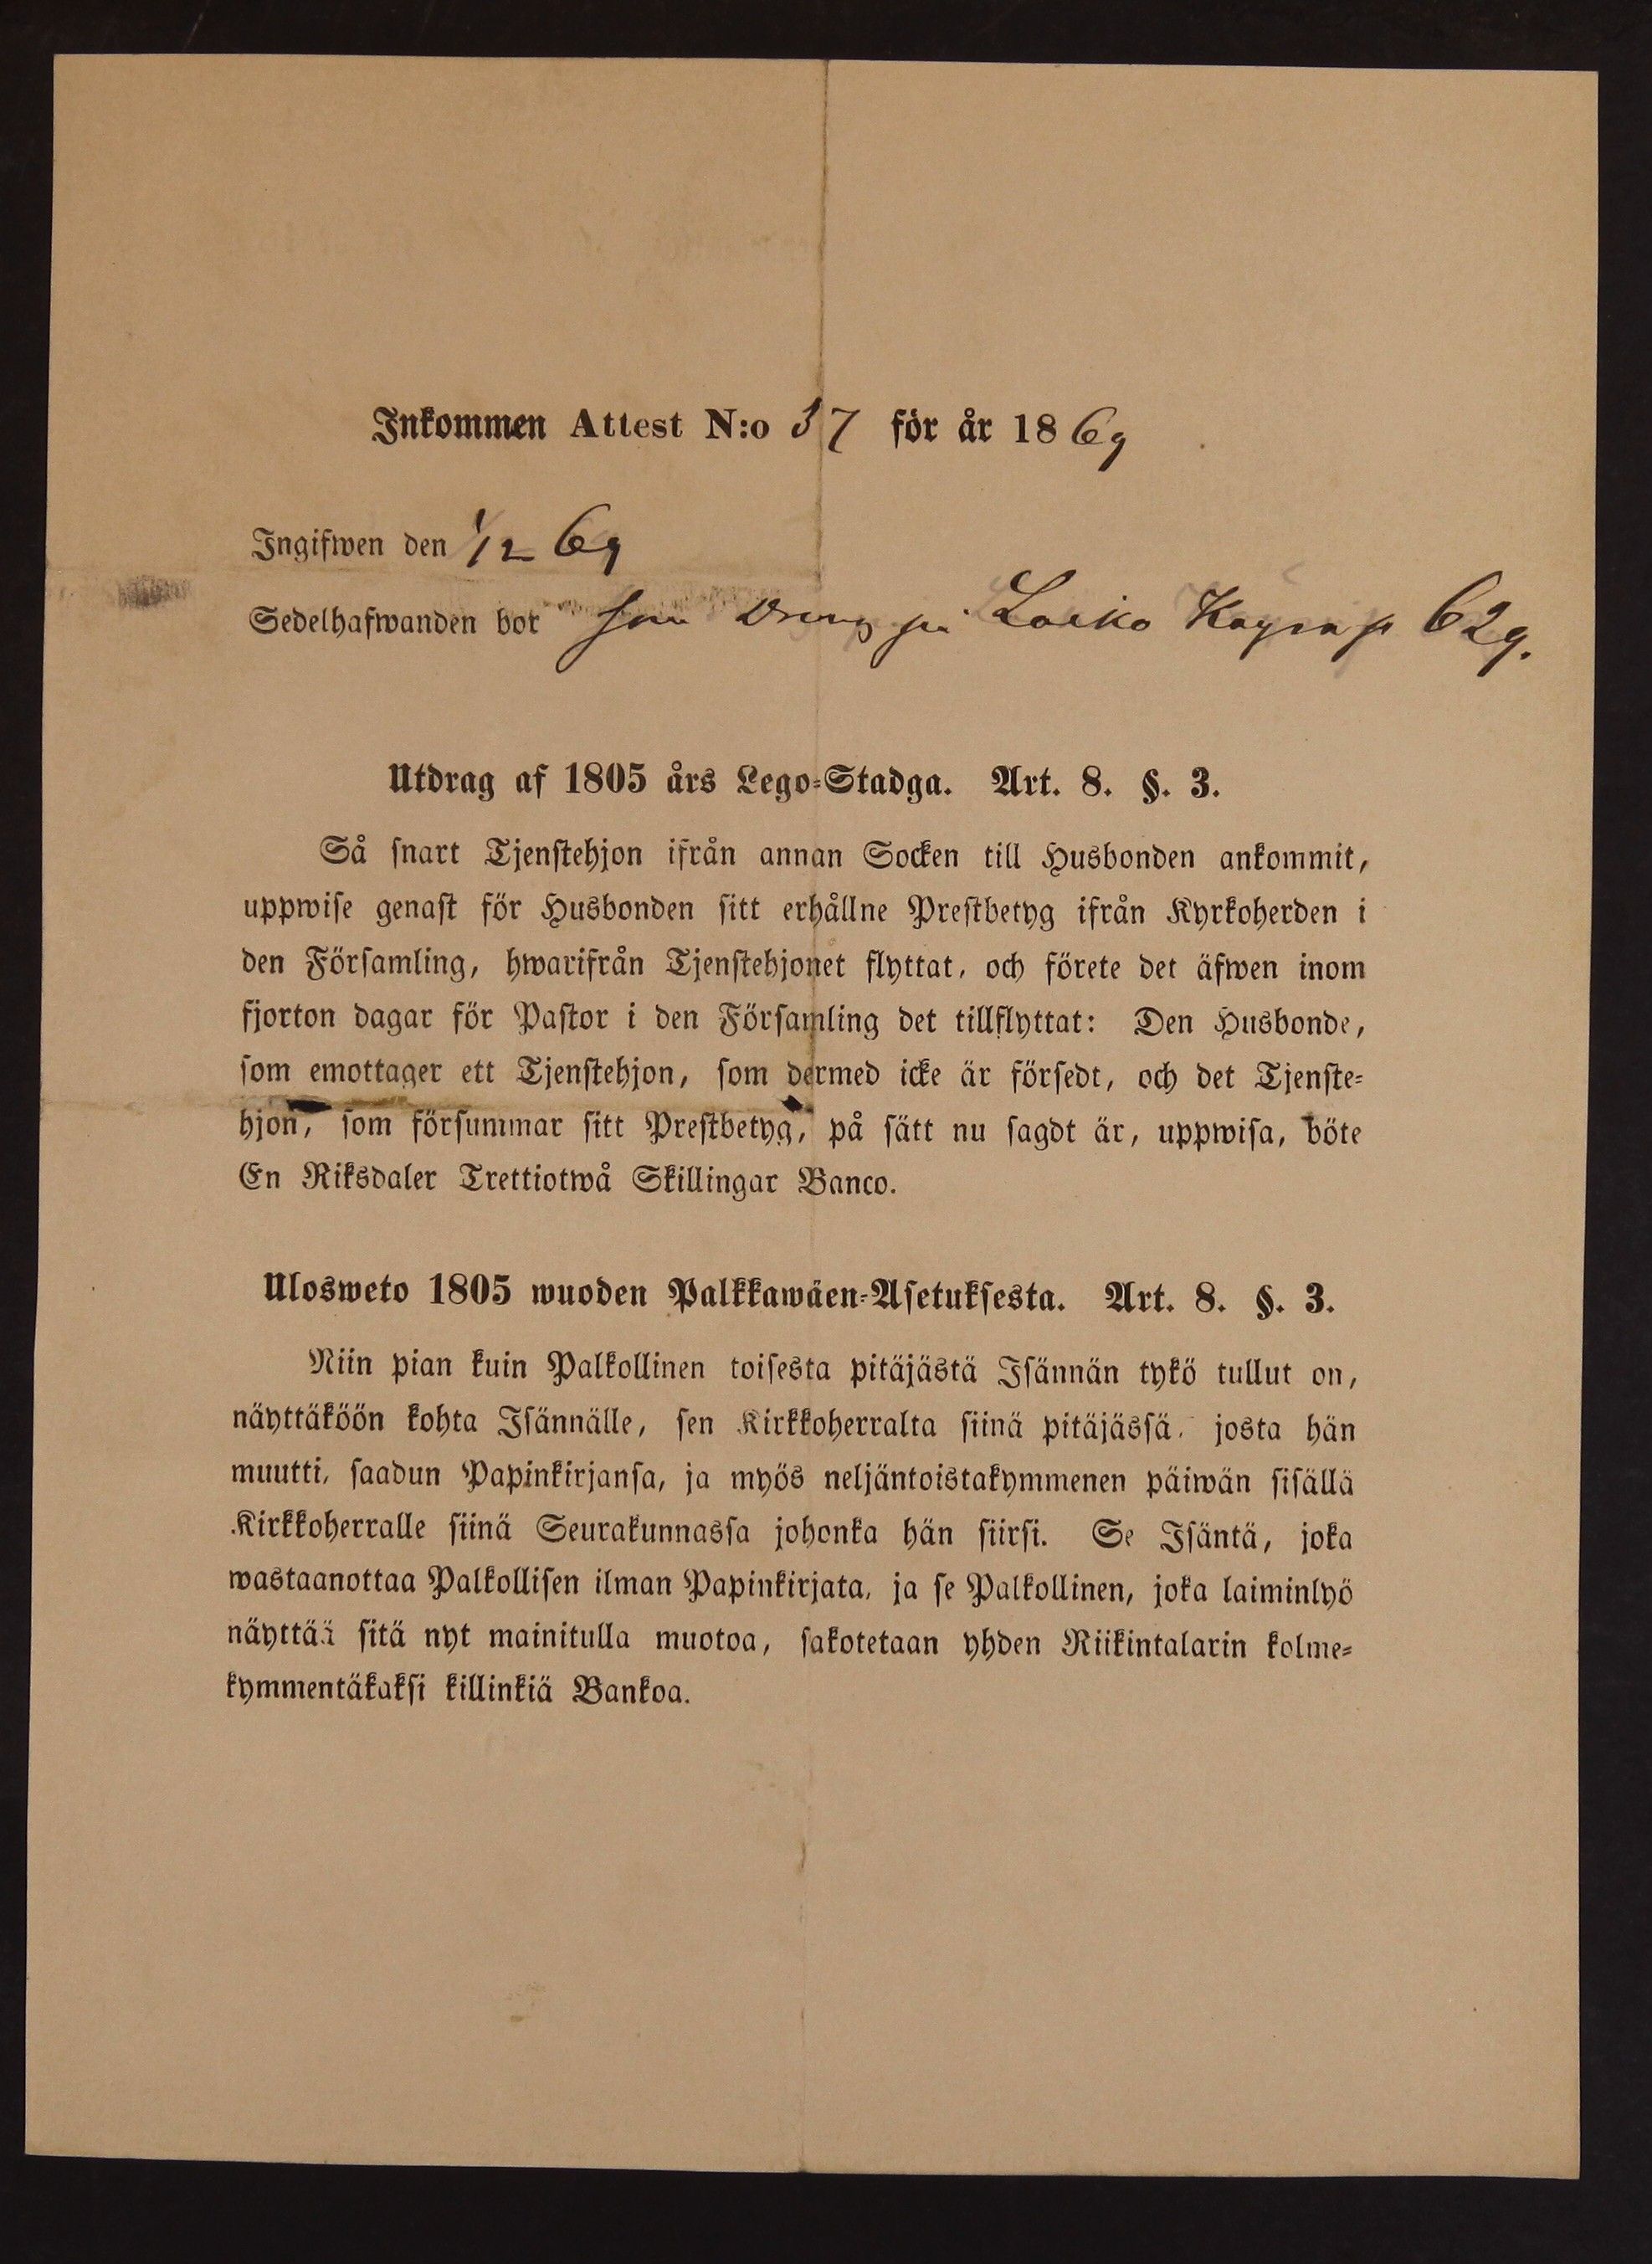 Inkommen Attest N:o 37 för år 1869
Ingifwen den 1/12 69
Sedelhafwanden bor som Dreng på Loiko p 629.
Utdrag af 1805 års Lego-Stadga. Art. 8. §. 3.
Så snart Tjenstehjon ifrån annan Socken till Husbonden ankommit,
uppwise genast för Husbonden sitt erhållne Prestbetyg ifrån Kyrkoherden i
den Församling, hwarifrån Tjenstehjonet flyttat, och förete det äfwen inom
fjorton dagar för Pastor i den Församling det tillflyttat: Den Husbonde,
som emottager ett Tjenstehjon, som dermed icke är försedt, och det Tjenste-
hjon, som försummar sitt Prestbetyg, på sätt nu sagdt är, uppwisa, böte
En Riksdaler Trettiotwå Skillingar Banco.
Ulosweto 1805 wuoden Palkkawäen-Asetuksesta. Art. 8. §. 3.
Niin pian kuin Palkollinen toisesta pitäjästä Isännän tykö tullut on,
näyttäköön kohta Isännälle, sen Kirkkoherralta siinä pitäjässä, josta hän
muutti, saadun Papinkirjansa, ja myös neljäntoistakymmenen päiwän sisällä
Kirkkoherralle siinä Seurakunnassa johonka hän siirsi. Se Isäntä, joka
wastaanottaa Palkollisen ilman Papinkirjata, ja se Palkollinen, joka laiminlyö
näyttää sitä nyt mainitulla muotoa, sakotetaan yhden Riikintalarin kolme-
kymmentäkaksi killinkiä Bankoa.